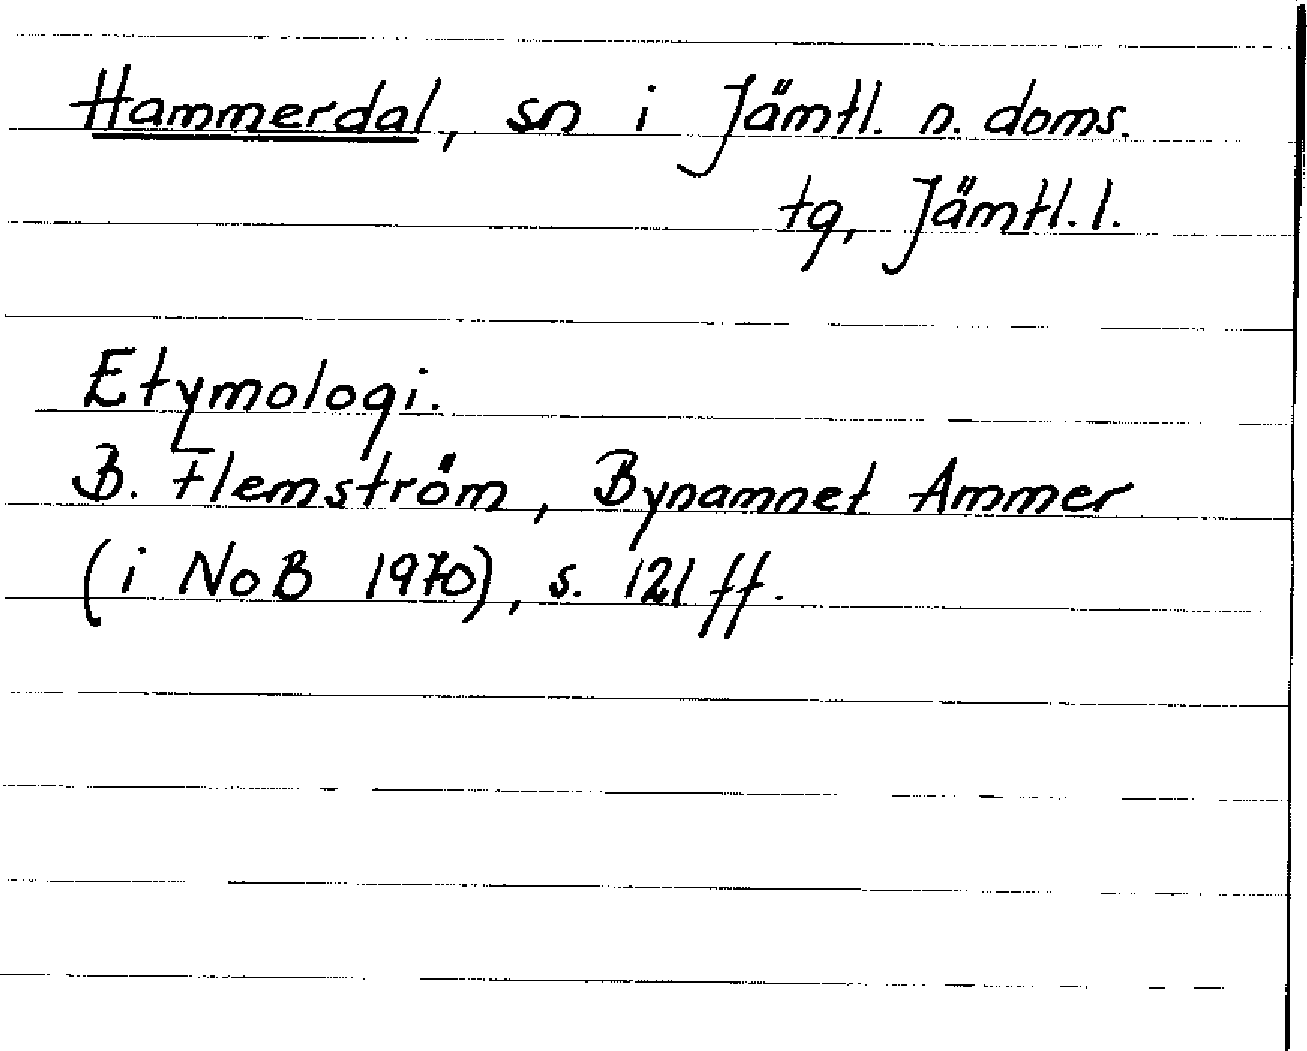 Hammerdal, sn i Jämtl. n. doms.
tg, Jämtl. l.
Etymologi.
B. Flemström, Bynamnet Ammer
(i NoB 1970), s. 121 ff.